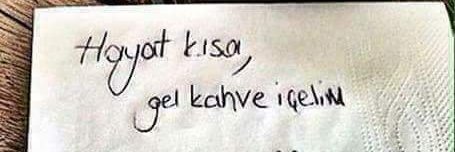 Hayat kısa,
gel kahve içelim